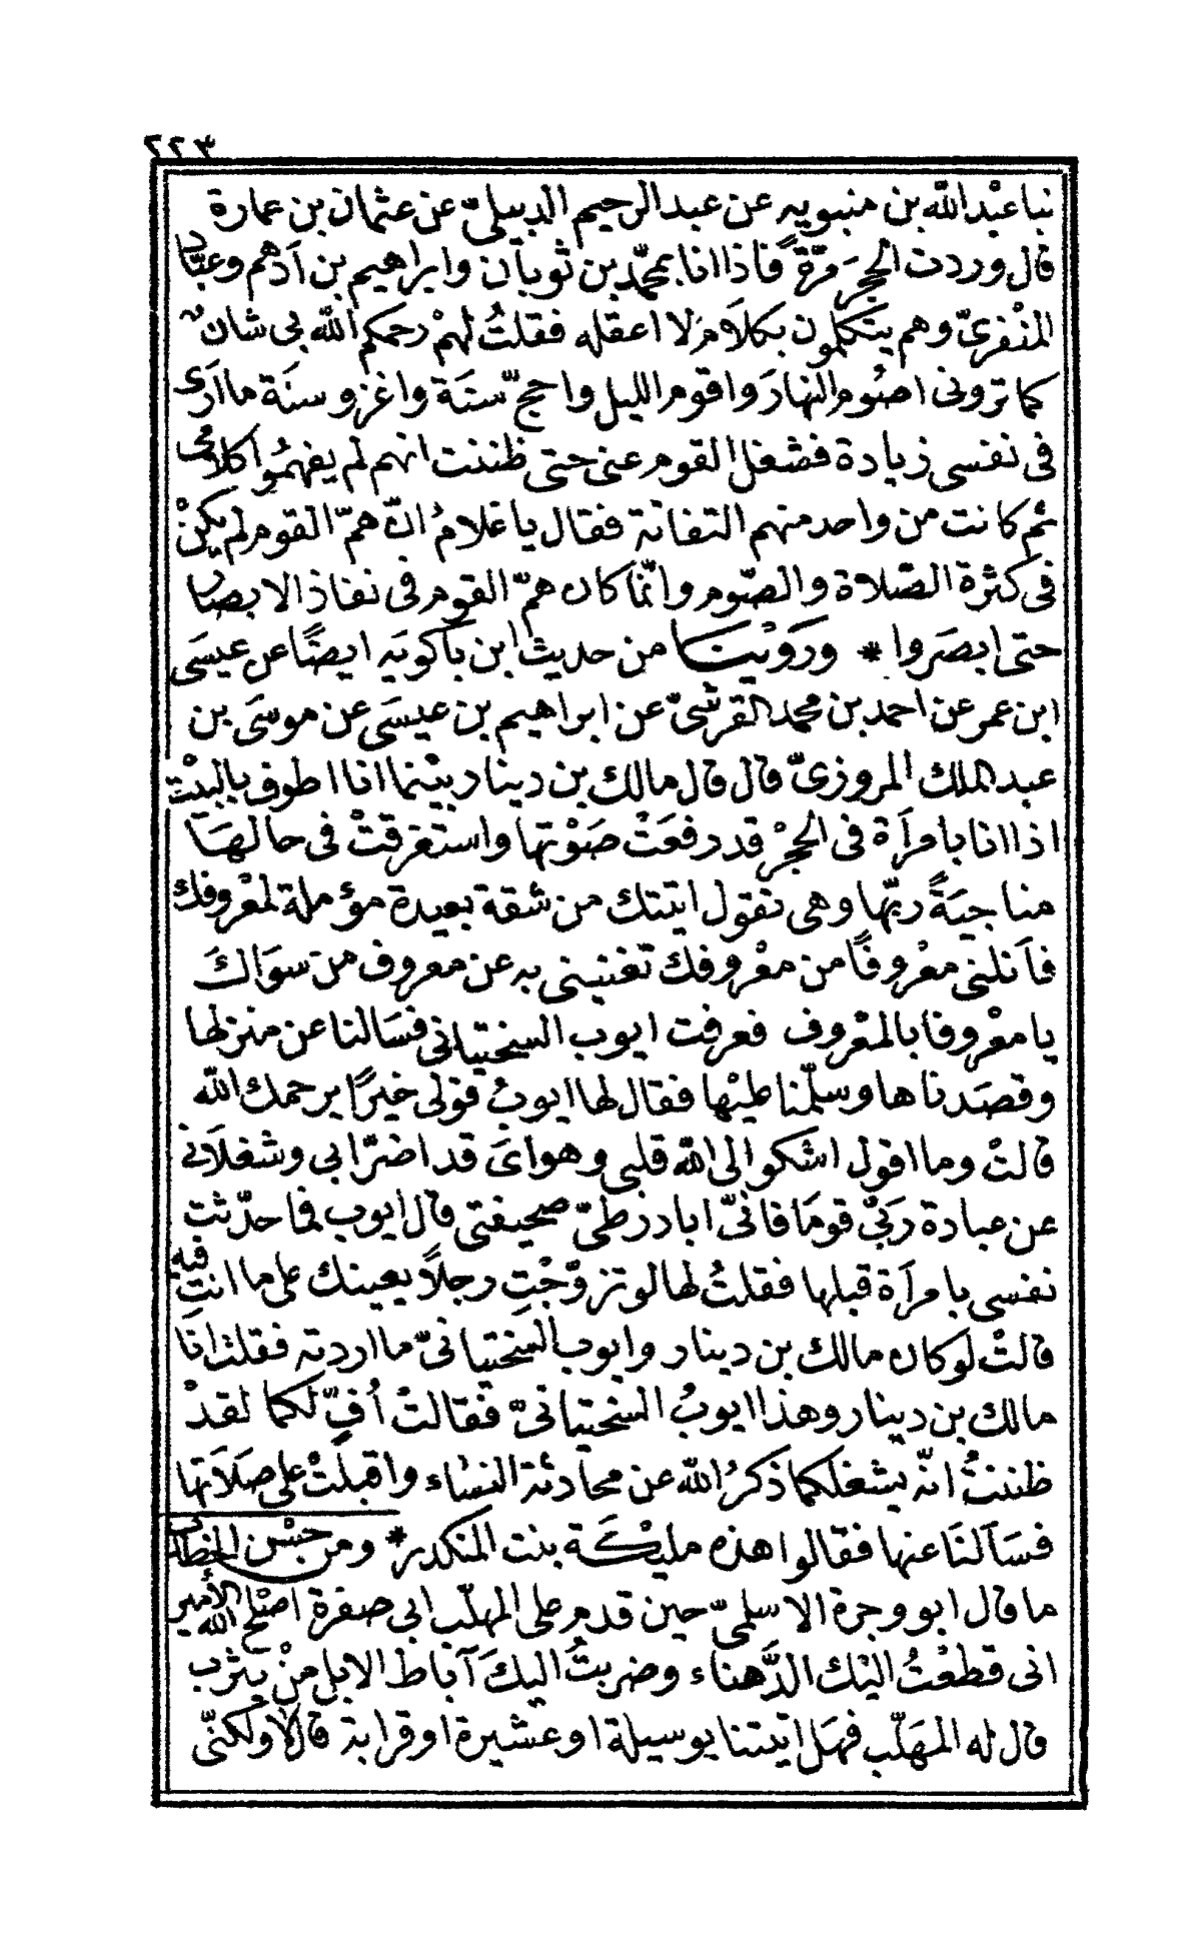 ٢٢٣
نبا عبْد الله بن منبويه عن عبد الرحيم الدبيلىّ عن عثمان بن عمارة
قال وردت الحجرَ مرّةً فاذا انا بمحمّد بن ثوبان وابراهيم بن اَدهم وعبّاد
المنْقرىّ وهم يتكلمون بكلاَم لا اعقله فقلتُ لهمْ رحمكم الله بى شان
كما ترونى اصُوم النهارَ واقوم الليل واحجّ سنَة واغزو سنَة ما اَرى
فى نفسى زيادة فشغل القوم عنى حتى ظننت انهم لم يفهمُوا كلامى
ثم كانت من واحد منهم التفاتة فقال يا غلامُ انّ همّ القوم لم يكنْ
فى كثرة الصّلاة والصّوم وانّما كان همّ القوم فى نفاذ الابصار
حتى ابصَروا * ورَوْينا من حديث ابن باكويَه ايضًا عن عيسَى
ابن عمر عن احمد بن محمد القرشىّ عن ابراهيم بن عيسَى عن موسَى بن
عبد الملك المروزىّ قال قال مالك بن دينار بيْنما انا اطوف بالبيْت
اذا انا بامرأَة فى الحجرْ قد رفعَتْ صَوْتها واستغرقتْ فى حالهَا
مناجيَةً ربّها وهى تقول اتيتك من شقة بعيدة مؤملة لمعْروفك
فاَنلنى معْروفًا من معْروفك تغنينى به عن معروف من سوَاكَ
يا معْروفا بالمعْروف فعرفت ايوب السختيانى فسَالنا عن منزلها
وقصَدناها وسلّمنا عليْها فقال لها ايوبُ قولى خيرًا يرحمك الله
قالتْ وما اقول اشكو الى الله قلبى وهواىَ قد اضرّا بى وشغلاَنى
عن عبادة ربىّ قومَا فانىّ ابادر طىّ صحيفتى قال ايوب فما حدّثت
نفسى بامرأَة قبلها فقلتُ لها لو تزوّجْتِ رجلاً يعينك على ما انتِ فيه
قالتْ لو كان مالك بن دينار وايوب السختيانىّ ما اردته فقلت انا
مالك بن دينار وهذا ايوبُ السختيانىّ فقالتْ اُفّ لكما لقدْ
ظننتُ انّه يشغلكما ذكرُ الله عن محادثة النسْاء واقبلَتْ على صَلاَتها
فسَاَلنَا عنها فقالوا هذه مليْكَة بنت المنكدر * ومن حسْن الخطاب
ما قال ابو وجزة الاسلمىّ حين قدم على المهلّب ابى صفرة اصْلح الله الأمير
انى قطعْتُ اليْك الدَّهناء وضربتُ اليكَ آباط الابل منْ يثرب
قال له المهَلّب فهَل اتيتنا بوسيلة او عشيرة او قرابة قال لا ولكنّى